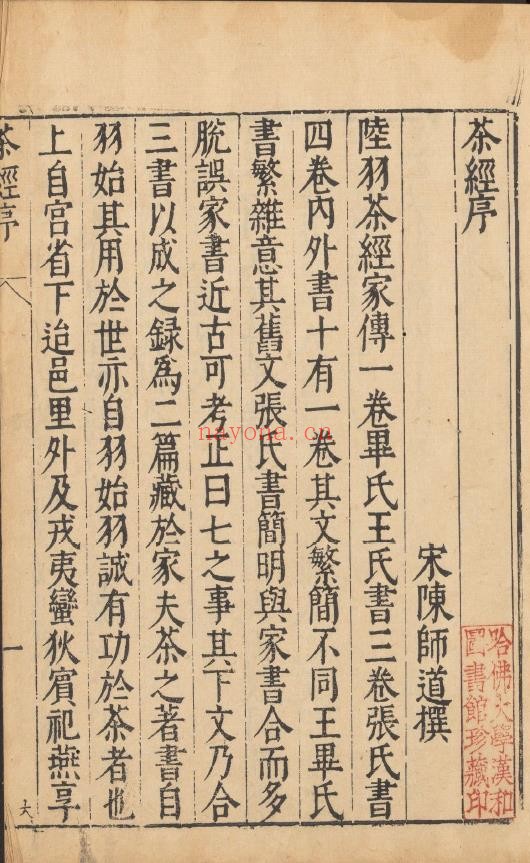 茶經序
宋陳師道撰
陸羽茶經家傳一卷畢氏王氏書三卷張氏書
四卷內外書十有一卷其文繁簡不同王畢氏
書繁雜意其舊文張氏書簡明與家書合而多
脫誤家書近古可考正曰七之事其下文乃合
三書以成之録爲二篇藏於家夫茶之著書自
羽始其用於世亦自羽始羽誠有功於茶者也
上自宮省下迨邑里外及戎夷蠻狄賓祀燕享
茶經序
一
哈佛大學漢和
圖書館珍藏印
nayona.cn